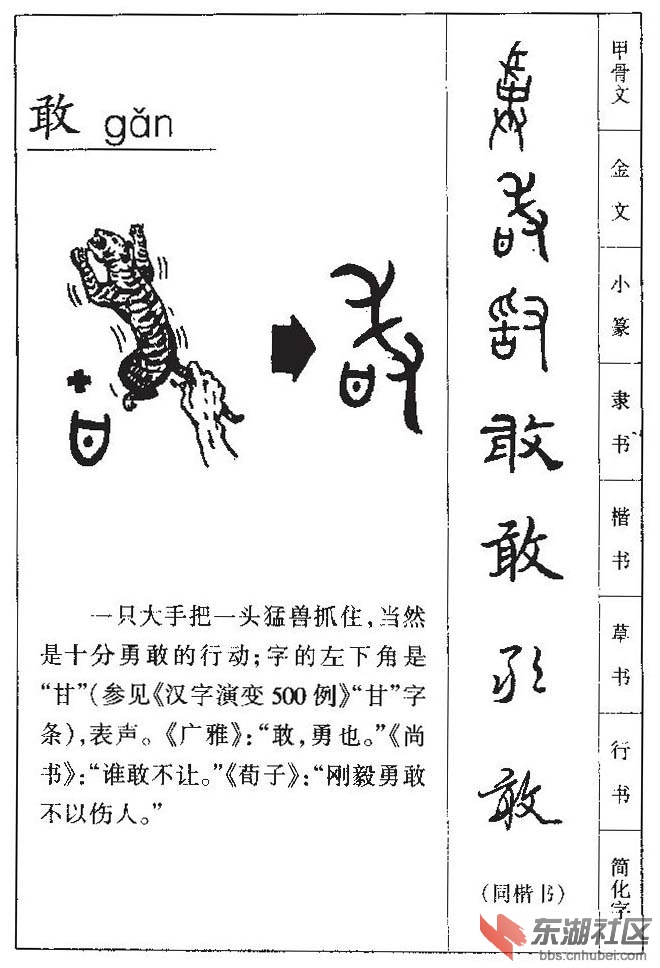 敢 gǎn
一只大手把一头猛兽抓住，当然
是十分勇敢的行动；字的左下角是
“甘”（参见《汉字演变500例》“甘”字
条），表声。《广雅》：“敢，勇也。”《尚
书》：“谁敢不让。”《荀子》：“刚毅勇敢
不以伤人。”
敢 甲骨文
敢 金文
敢 小篆
敢 隶书
敢 楷书
敢 草书
敢 行书
（同楷书） 简化字
东湖社区
bbs.cnhubei.com